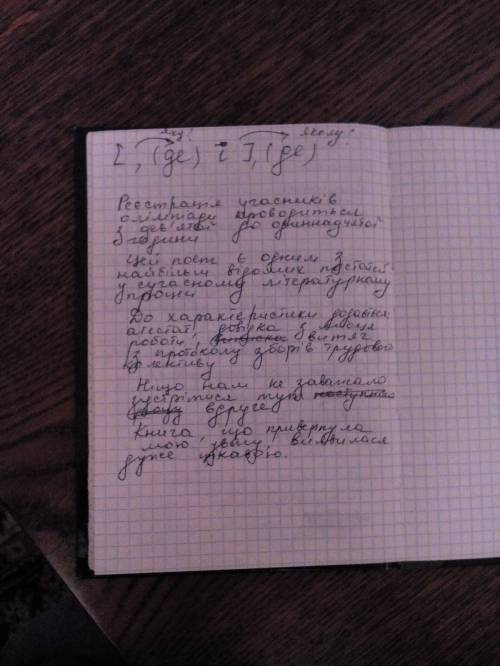 яку? якому?
[ , (де) і ], (де)
Реєстрація учасників
олімпіади проводиться
з дев'ятої до одиннадчятої
години
Цей поет є одним з
найбільш відомих постатей
у сучасному літературному
процесі
До характеристики додавався
атестат, довідка з місця
роботи, виписка витяг
з протоколу зборів трудового
колективу
Ніщо нам не заважало
зустрітися тут наступного
вдруге
Книга, що привернула
мою увагу, виявилася
дуже цікавою.